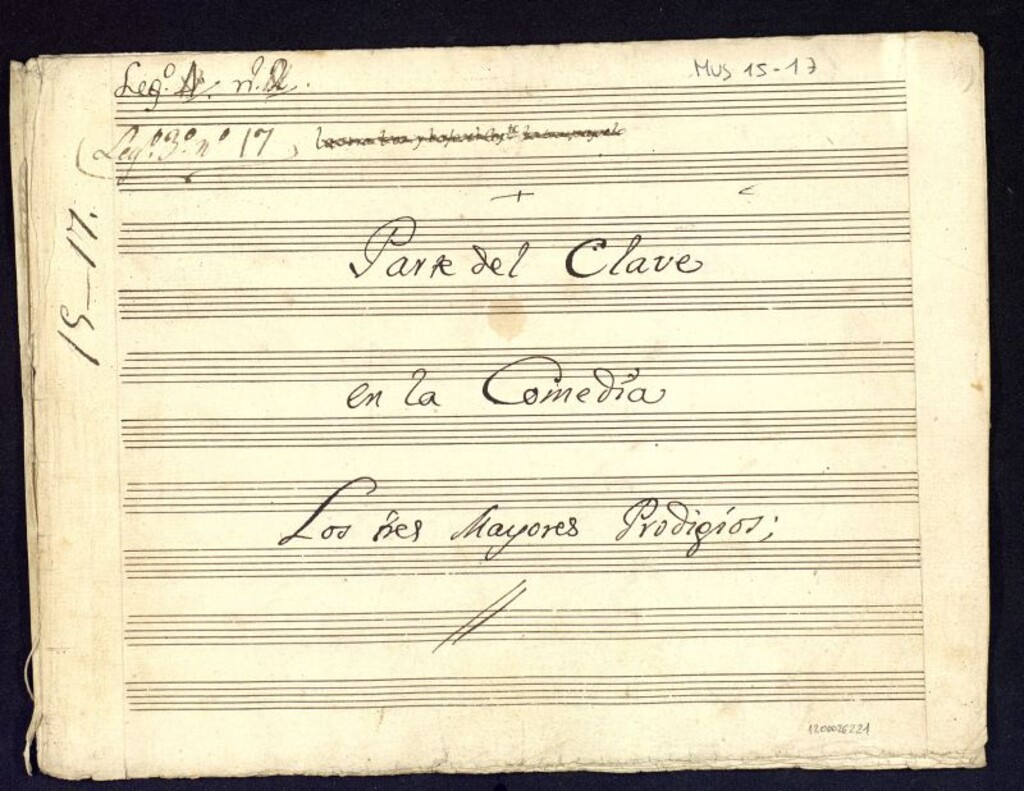 Leg.º nº
MUS 15-17
(Leg.º 3.º nº 17)
15-17.
Parte del Clave
en la Comedia
Los tres Mayores Prodigios;
1200026221